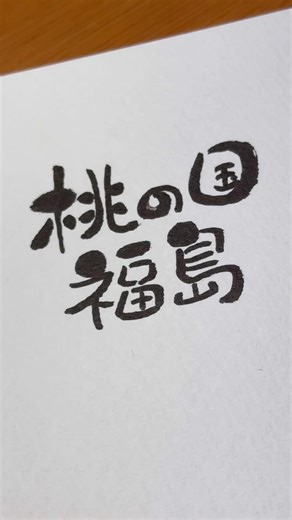 桃の国
福島